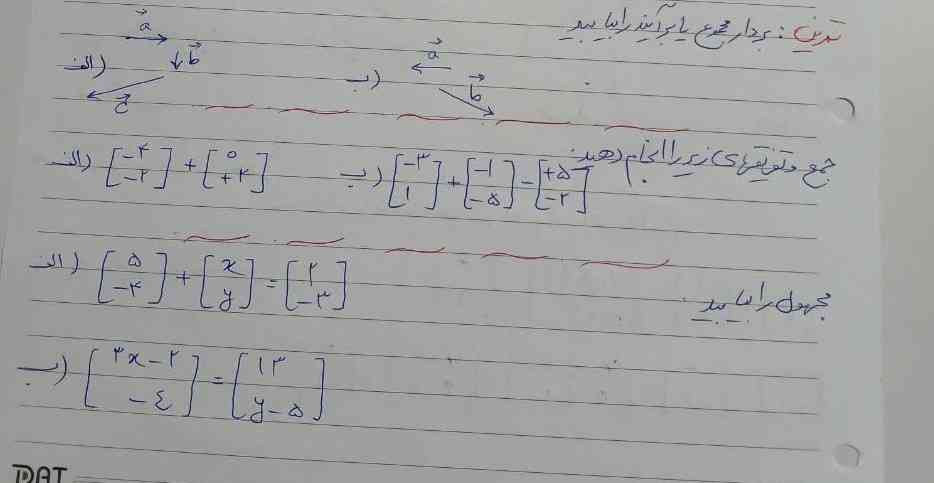 تمرین: بردار مجموع یا برآیند را بیابید
الف) a⃗ b⃗ c⃗
ب) a⃗ b⃗
جمع و تفریقهای زیر را انجام دهید:
الف) [−۴ / −۲] + [۰ / +۲]
ب) [−۳ / ۱] + [−۱ / −۵] − [+۵ / −۲]
مجهول را بیابید
الف) [۵ / −۴] + [x / y] = [۲ / −۳]
ب) [۳x − ۲ / −٤] = [۱۳ / y − ۵]